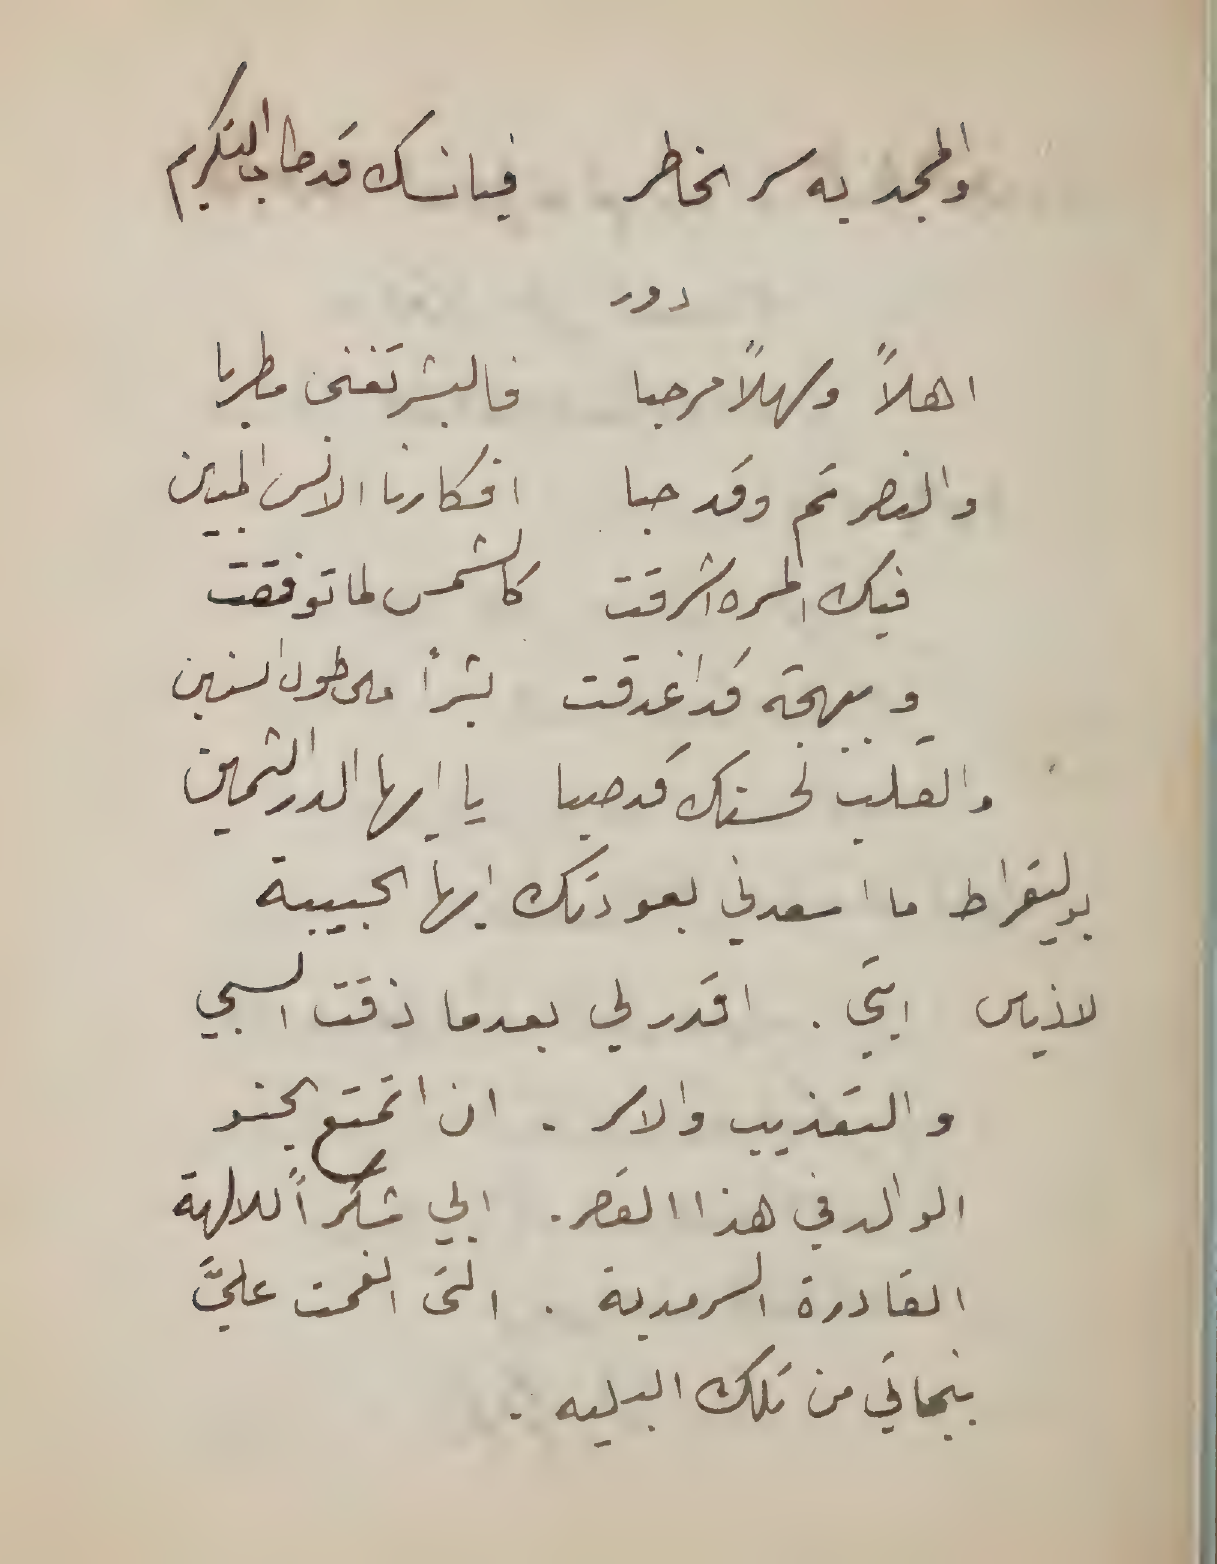 والمجد به سر الخاطر فبانسك قد طاب التكريم
دور
اهلاً وسهلاً مرحبا فالبشر تغنى مطربا
والنصر تم وقد حبا افكارنا الانس المبين
فيك المسره اشرقت كالشمس لما توفقت
وبهجة قد اغدقت بشراً على طول السنين
والقلب لحسنك قد صبا يا ايها الدر الثمين
بوليقراط ما اسعدني بعودتك ايتها الحبيبة
لاذياس ابتي . اقدر لي بعدما ذقت السبي
والتعذيب والاسر . ان اتمتع بحنو
الوالد في هذا القصر . ابي شكراً للالهة
القادرة السرمدية . التى انعمت عليَّ
بنجاتي من تلك البليه .